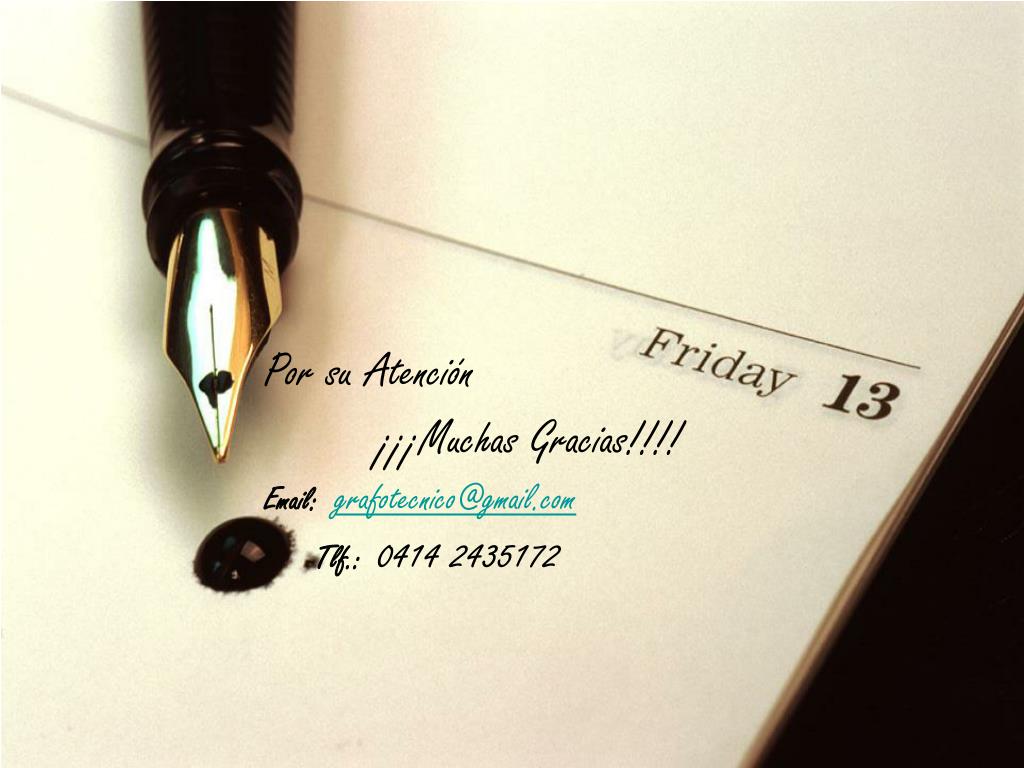 Friday 13
Por su Atención
¡¡¡Muchas Gracias!!!!
Email: grafotecnico@gmail.com
Tlf.: 0414 2435172